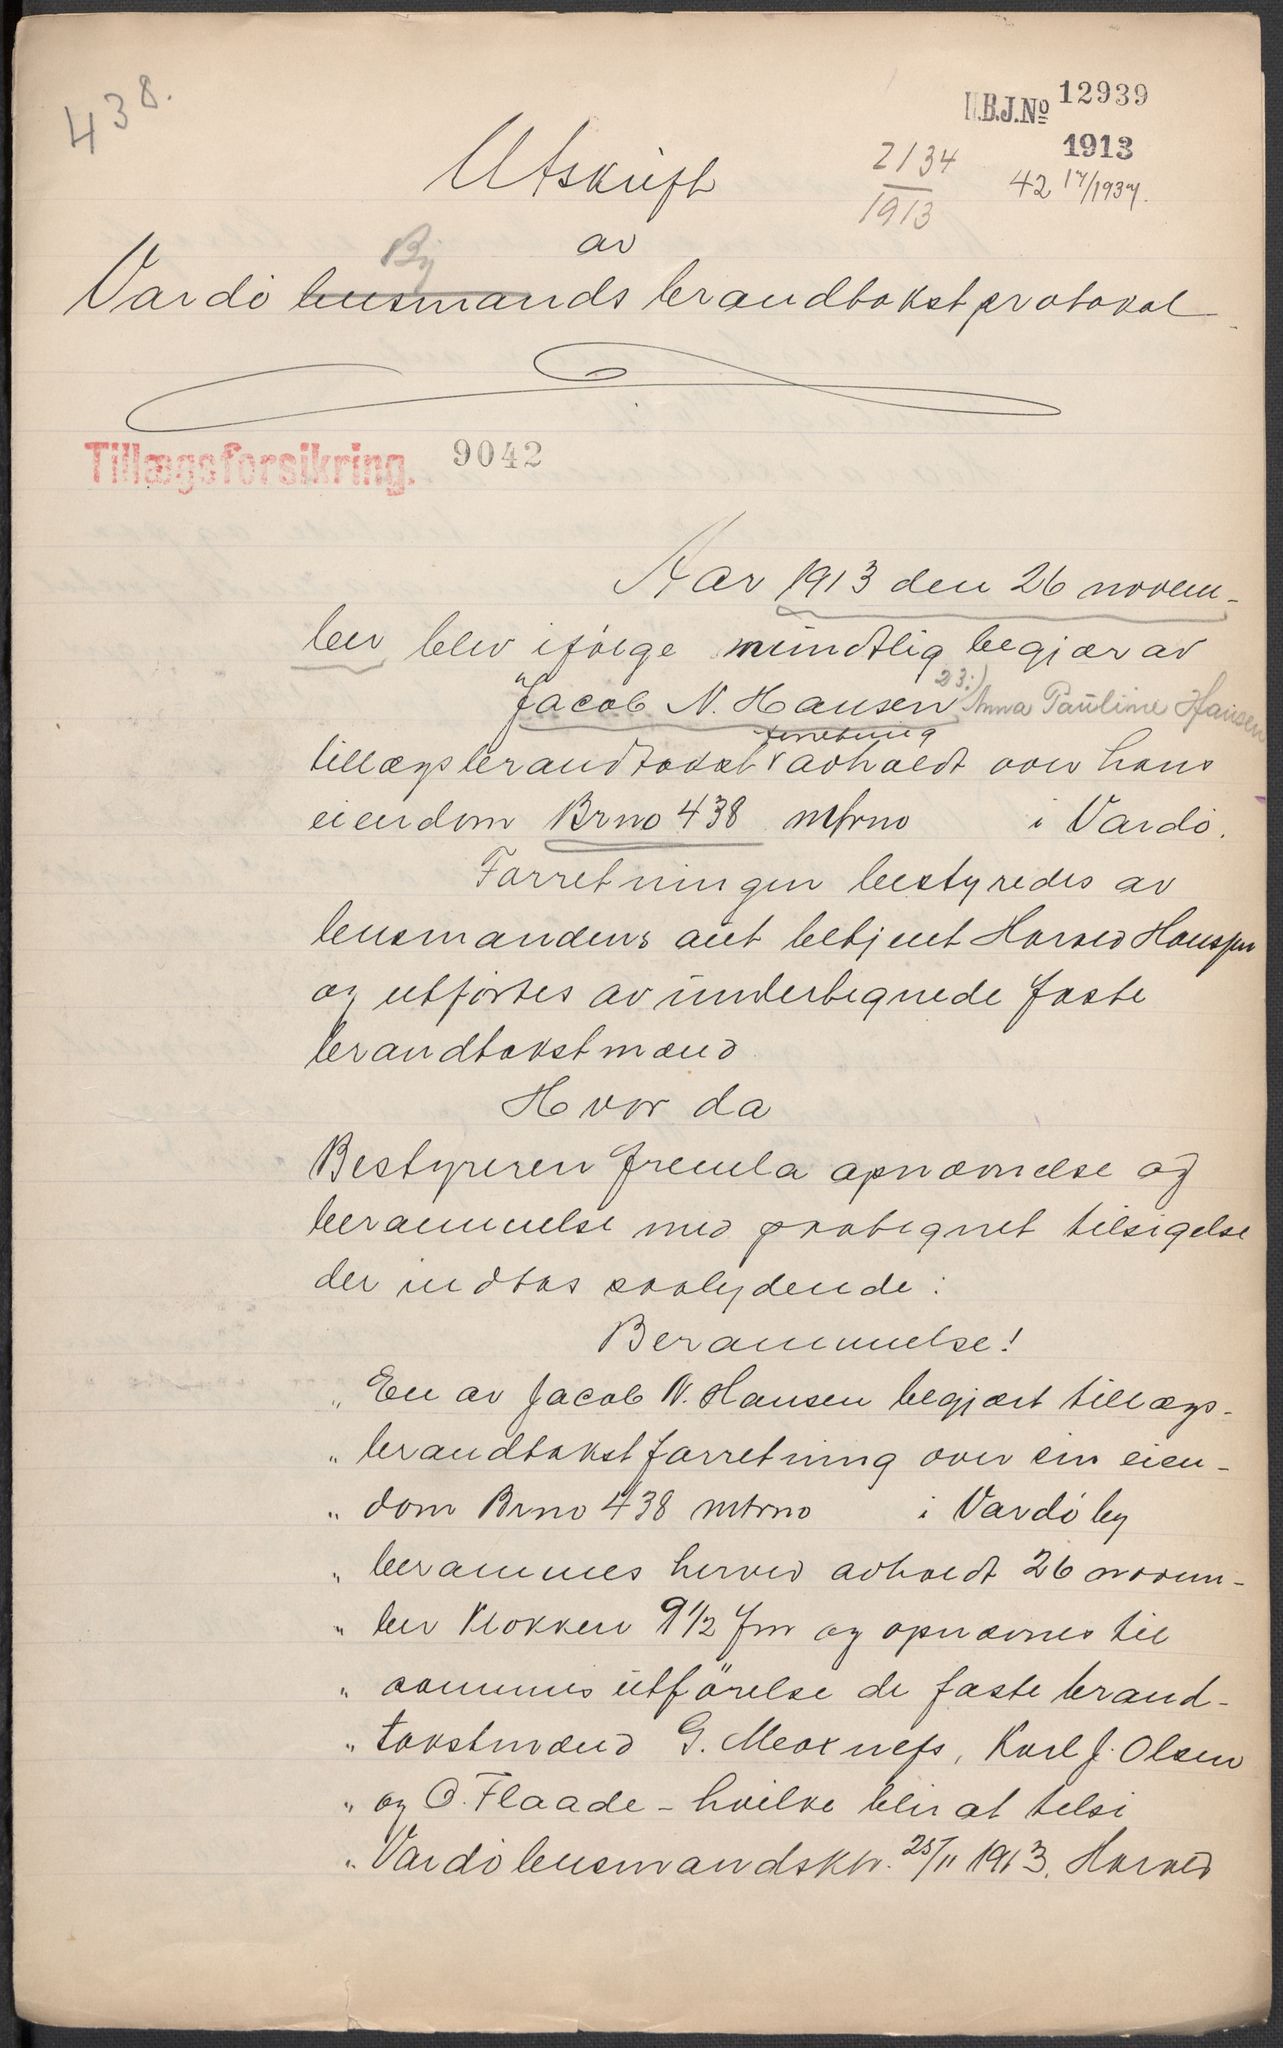 438.
N.B.J.No 12939
1913
2134
1913
42 17/1937.
Utskrift
av
By
Vardö lensmands brandtakstprotokol
Tillægsforsikring. 9042
Aar 1913 den 26 novem-
ber blev ifölge mundtlig begjær av
Jacob N. Hansen 23:) Anna Pauline Hansen
forretning
tillægsbrandtakst avholdt over hans
eiendom Brno 438 mtrno i Vardö.
Forretningen bestyredes av
lensmandens aut betjent Harald Hansen
og utförtes av undertegnede faste
brandtakstmænd
Hvor da
Bestyreren fremla opnævnelse og
berammelse med paategnet tilsigelse
der indtas saalydende:
Berammelse!
„ En av Jacob N. Hansen begjært tillægs-
„ brandtakstforretning over sin eien-
„ dom Brno 438 mtrno i Vardö by
„ berammes herved avholdt 26 novem-
„ ber klokken 9 1/2 fm og opnævnes til
„ sammes utförelse de faste brand-
„ takstmænd G. Meoxness, Karl J. Olsen
„ og O. Flaade - hvilke blir at tilsi
„ Vardö lensmandsktr. 25/11 1913. Harald